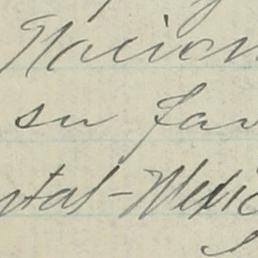 Nacion
su fav
ntal-Mexic